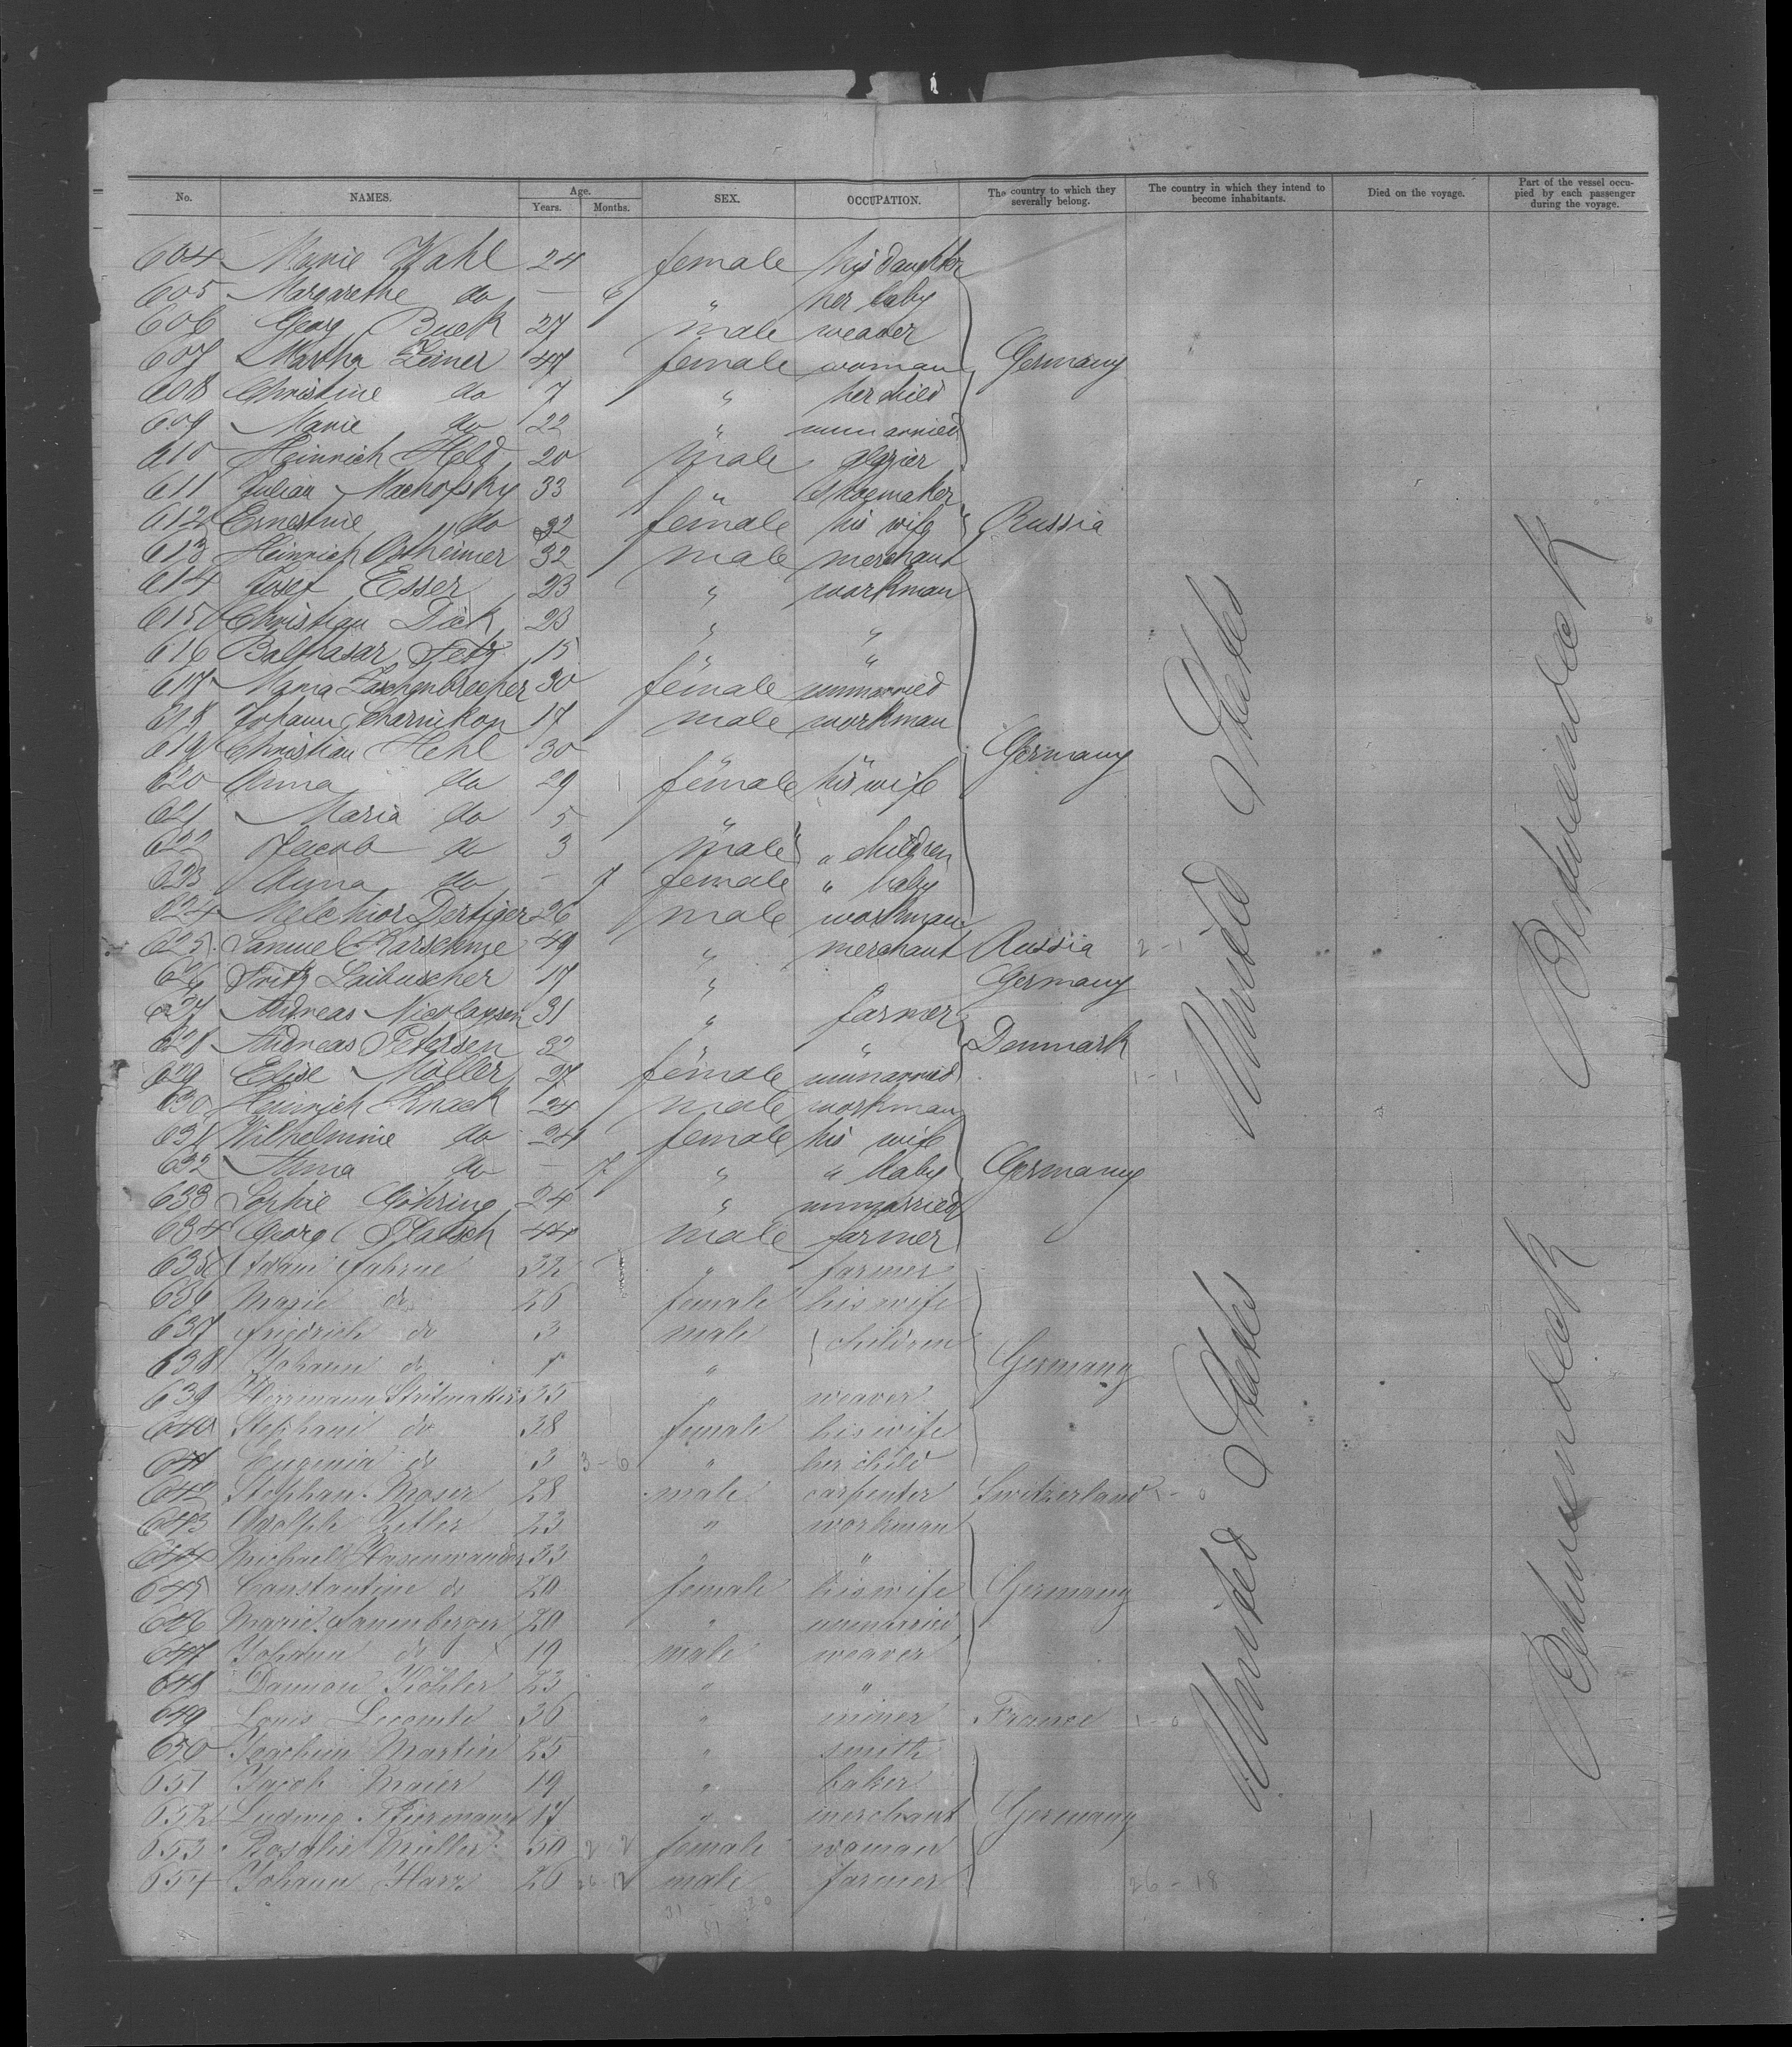 No. NAMES. Age. Years. Months. SEX. OCCUPATION. The country to which they severally belong. The country in which they intend to become inhabitants. Died on the voyage. Part of the vessel occupied by each passenger during the voyage.
604 Marie Wahl 24 female his daughter
605 Margarethe do — 6 " her baby
606 Georg Buck 27 male weaver
607 Martha Zeiner 47 female woman Germany
608 Christine do 7 " her child
609 Marie do 22 " unmarried
610 Heinrich Held 20 male glazier
611 Julian Machofsky 33 " shoemaker
612 Ernestine do 32 female his wife Russia
613 Heinrich 32 male merchant
614 Josef Esser 23 " workman
615 Christian Dick 23 " "
616 Balthasar Fetz 15 " "
617 Maria 30 female unmarried
618 Johann 17 male workman
619 Christian Hehl 30 " " Germany
620 Anna do 29 female his wife
621 Maria do 5 "
622 Jacob do 3 male " children
623 Anna do — 7 female " baby
624 Melchior Dertiger 26 male workman
625 Samuel 49 " merchant Russia 2-1
626 Fritz Laibuscher 17 " " Germany
627 Andreas Nicolaysen 31 " farmer
628 Andreas Petersen 32 " " Denmark
629 Elise Möller 27 female unmarried 1-1
630 Heinrich Knack 24 male workman
631 Wilhelmine do 24 female his wife
632 Anna do — 7 " " baby Germany
633 Sophie Göhring 24 " unmarried
634 Georg 44 male farmer
635 Adam 32 " farmer
636 Marie do 26 female his wife
637 Friedrich do 3 male children
638 Johann do " Germany
639 Herrmann 25 " weaver
640 Stephani do 28 female his wife
641 Eugenia do 3 3-6 " her child
642 Stephan Moser 28 male carpenter Switzerland 1-0
643 Adolph Zeller 23 " workman
644 Michael Hasenwander 33 " "
645 Constantine do 20 female his wife Germany
646 Marie 20 " unmarried
647 Johann do 19 male weaver
648 Damian Köhler 23 " "
649 Louis Lecomte 36 " miner France 1-0
650 Joachim Martin 25 " smith
651 Jacob Maier 19 " baker
652 Ludwig 17 " merchant Germany
653 Rosalie Müller 50 2-2 female woman
654 Johann Harz 26 male farmer 26-18
United States
Betweendeck
United States
Betweendeck